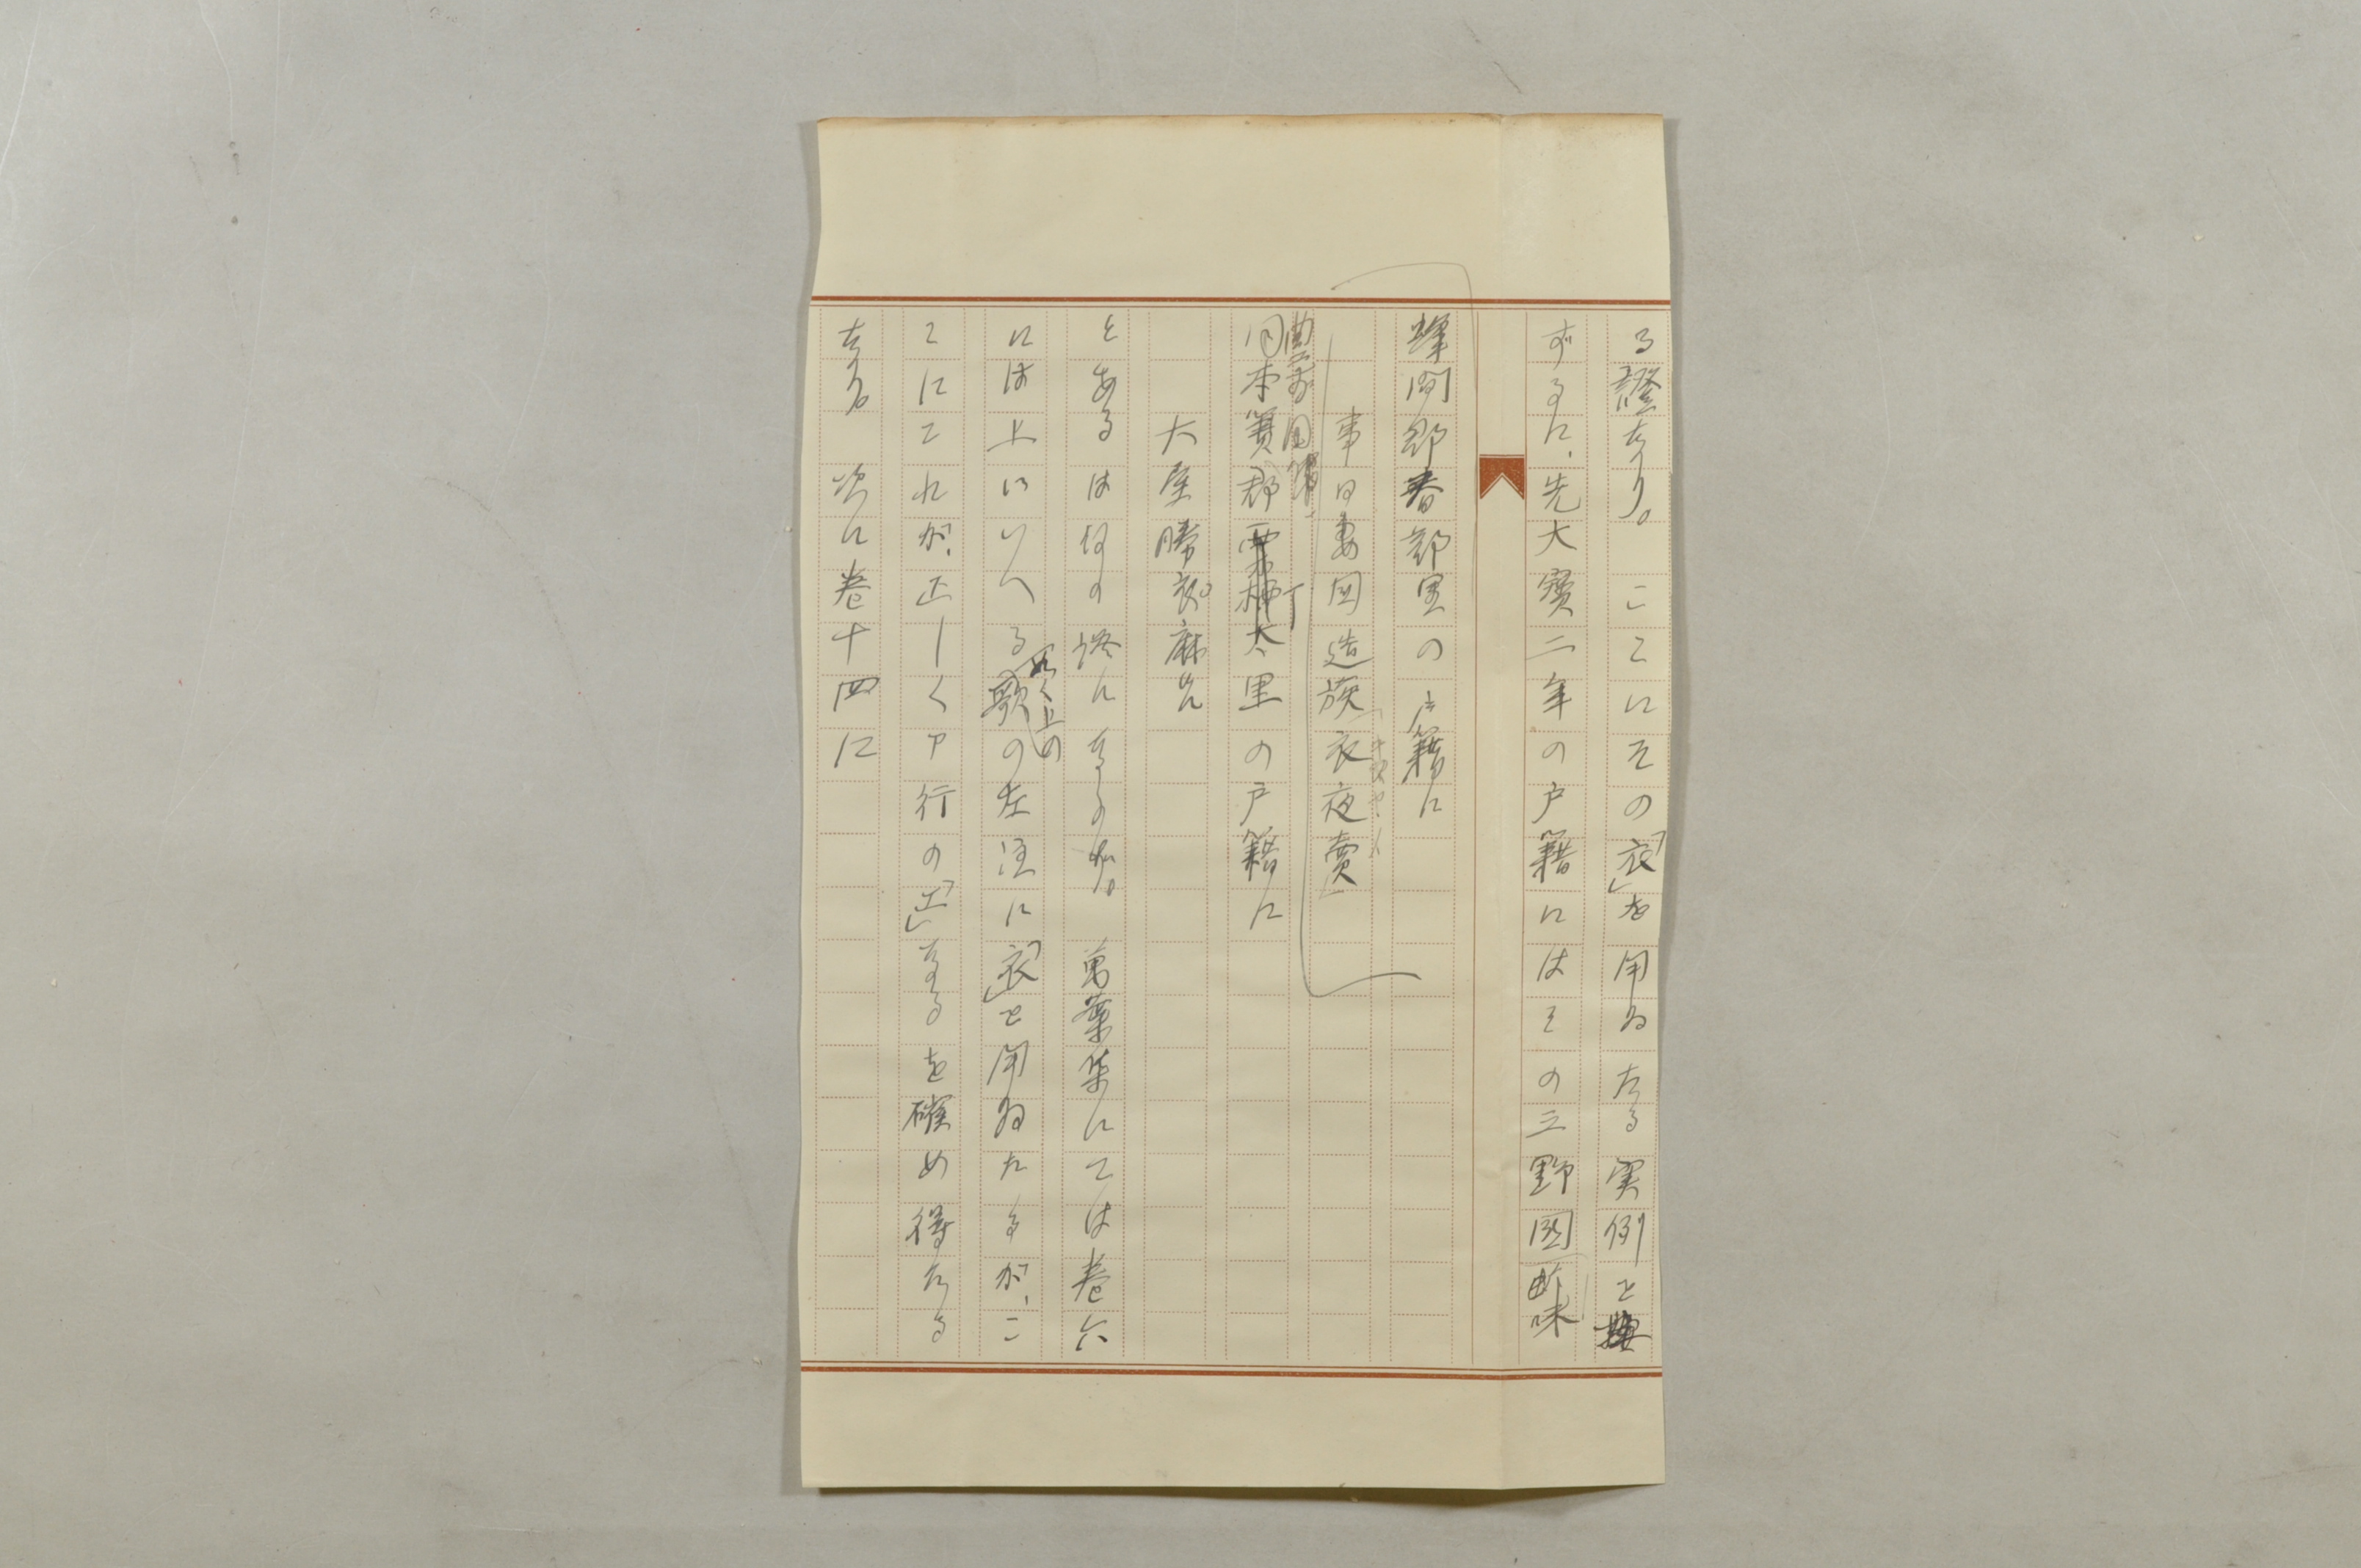 る證なり。こゝにその「衣」を用ゐたる実例を
ずるに、先大寶二年の戸籍にはその三野國
蜂間郡春部里の戸籍に
事曰妻国造族「衣夜賣」
豊前国
同本簀郡栗栖太里の戸籍に
大屋勝衣麻呂
とあるは何の證になるか。萬葉集にては巻六
には上にいへる歌の左注に「衣」を用ゐたるが、こ
如く上の
ゝにこれが正しくア行の「エ」なるを確め得たる
なり。次に巻十四に